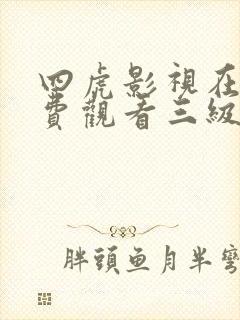 四虎影視在
費觀看三級
胖頭魚月半彎